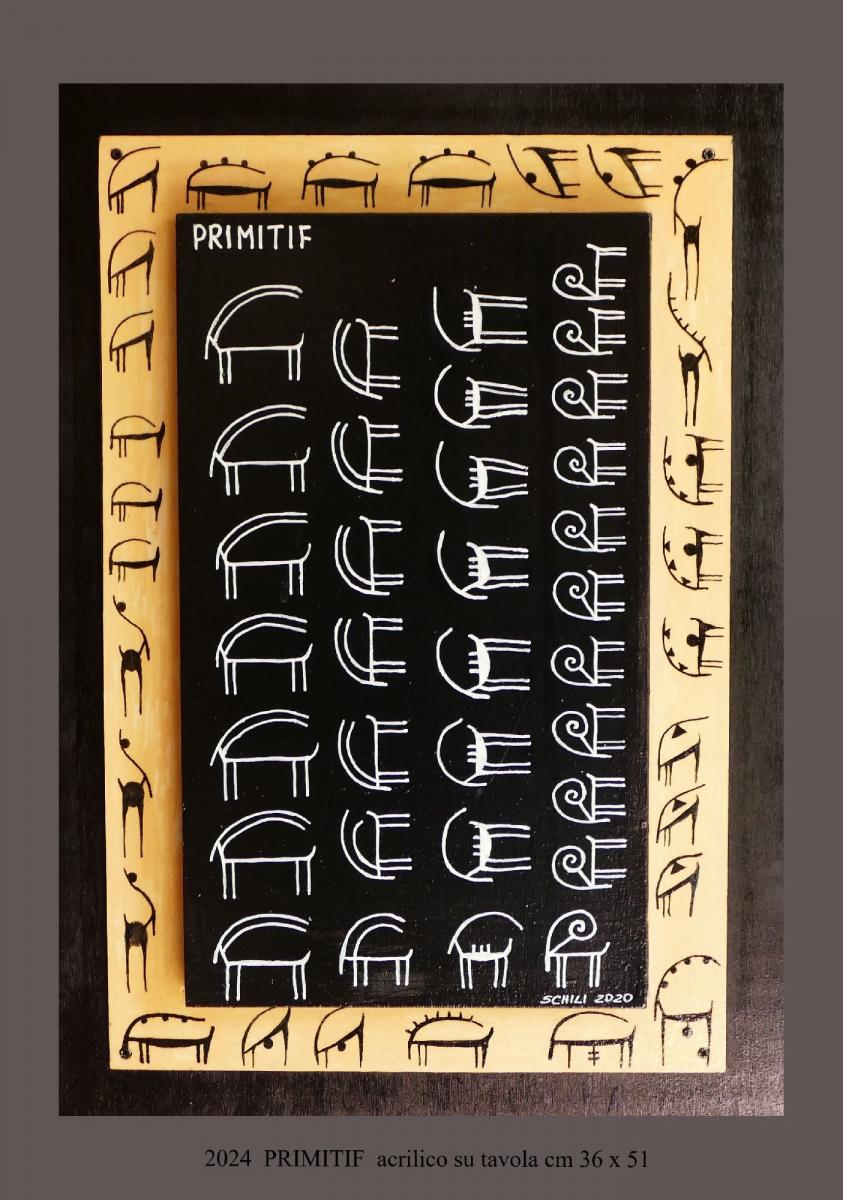 PRIMITIF
SCHILI 2020
2024 PRIMITIF acrilico su tavola cm 36 x 51